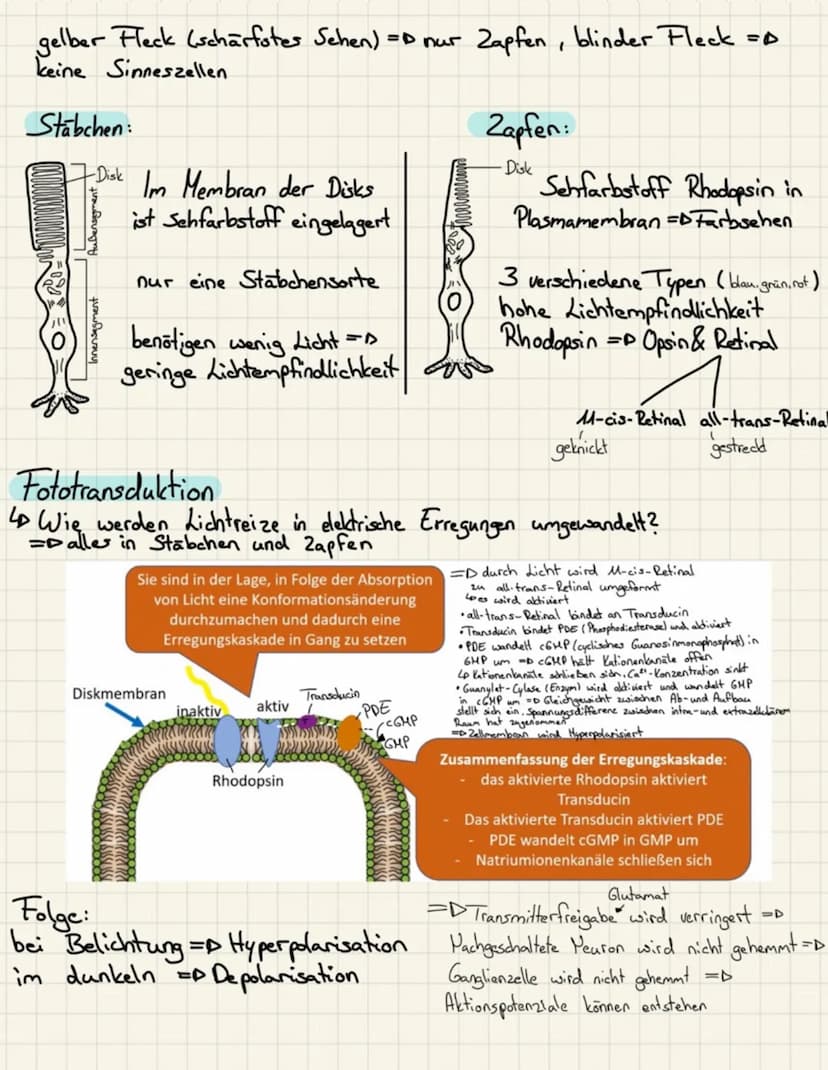 gelber Fleck (schärfstes Sehen) => nur Zapfen, blinder Fleck =>
keine Sinneszellen
Stäbchen:
Disk
Außensegment
Innensegment
Im Membran der Disks
ist Sehfarbstoff eingelagert
nur eine Stäbchensorte
benötigen wenig Licht =>
geringe Lichtempfindlichkeit
Zapfen:
Disk
Sehfarbstoff Rhodopsin in
Plasmamembran => Farbsehen
3 verschiedene Typen (blau, grün, rot)
hohe Lichtempfindlichkeit
Rhodopsin => Opsin & Retinal
11-cis-Retinal all-trans-Retinal
geknickt gestreckt
Fototransduktion
↳ Wie werden Lichtreize in elektrische Erregungen umgewandelt?
=> alles in Stäbchen und Zapfen
Sie sind in der Lage, in Folge der Absorption
von Licht eine Konformationsänderung
durchzumachen und dadurch eine
Erregungskaskade in Gang zu setzen
=> durch Licht wird 11-cis-Retinal
zu all-trans-Retinal umgeformt
↳ es wird aktiviert
• all-trans-Retinal bindet an Transducin
• Transducin bindet PDE (Phosphodiesterase) und aktiviert
• PDE wandelt cGMP (cyclisches Guanosinmonophosphat) in
GMP um => cGMP hält Kationenkanäle offen
↳ Kationenkanäle schließen sich, Ca²⁺-Konzentration sinkt
• Guanylat-Cylase (Enzym) wird aktiviert und wandelt GMP
in cGMP um => Gleichgewicht zwischen Ab- und Aufbau
stellt sich ein, Spannungsdifferenz zwischen intra- und extrazellulärem
Raum hat zugenommen
=> Zellmembran wird Hyperpolarisiert
Diskmembran
inaktiv
aktiv
Transducin
PDE
cGMP
GMP
Rhodopsin
Zusammenfassung der Erregungskaskade:
- das aktivierte Rhodopsin aktiviert
Transducin
- Das aktivierte Transducin aktiviert PDE
- PDE wandelt cGMP in GMP um
- Natriumionenkanäle schließen sich
Folge:
bei Belichtung => Hyperpolarisation
im dunkeln => Depolarisation
Glutamat
=> Transmitterfreigabe wird verringert =>
Nachgeschaltete Neuron wird nicht gehemmt =>
Ganglienzelle wird nicht gehemmt =>
Aktionspotenziale können entstehen